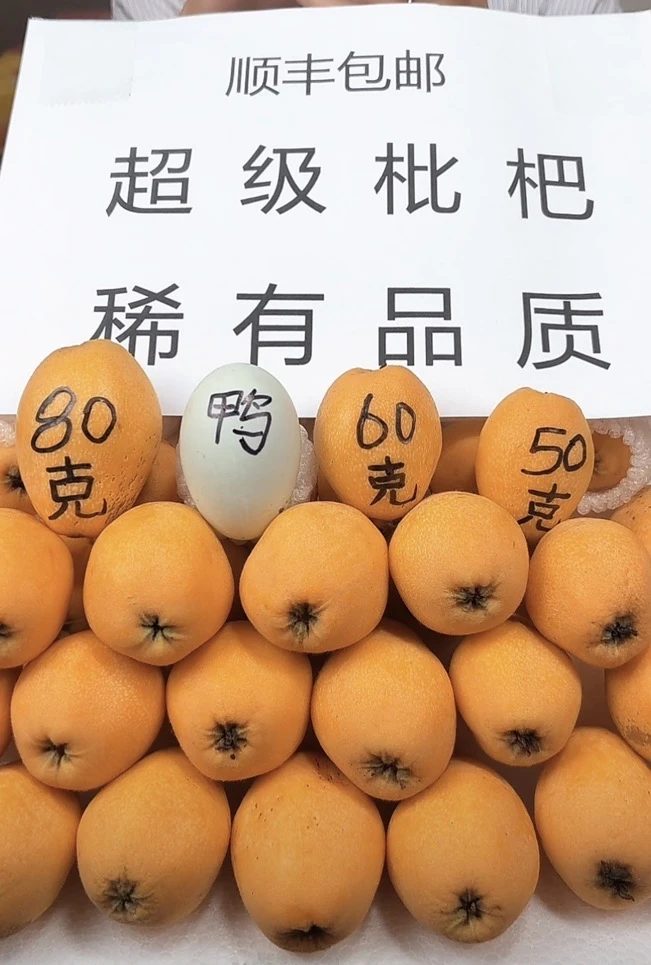 顺丰包邮
超级枇杷
稀有品质
80克
鸭
60克
50克